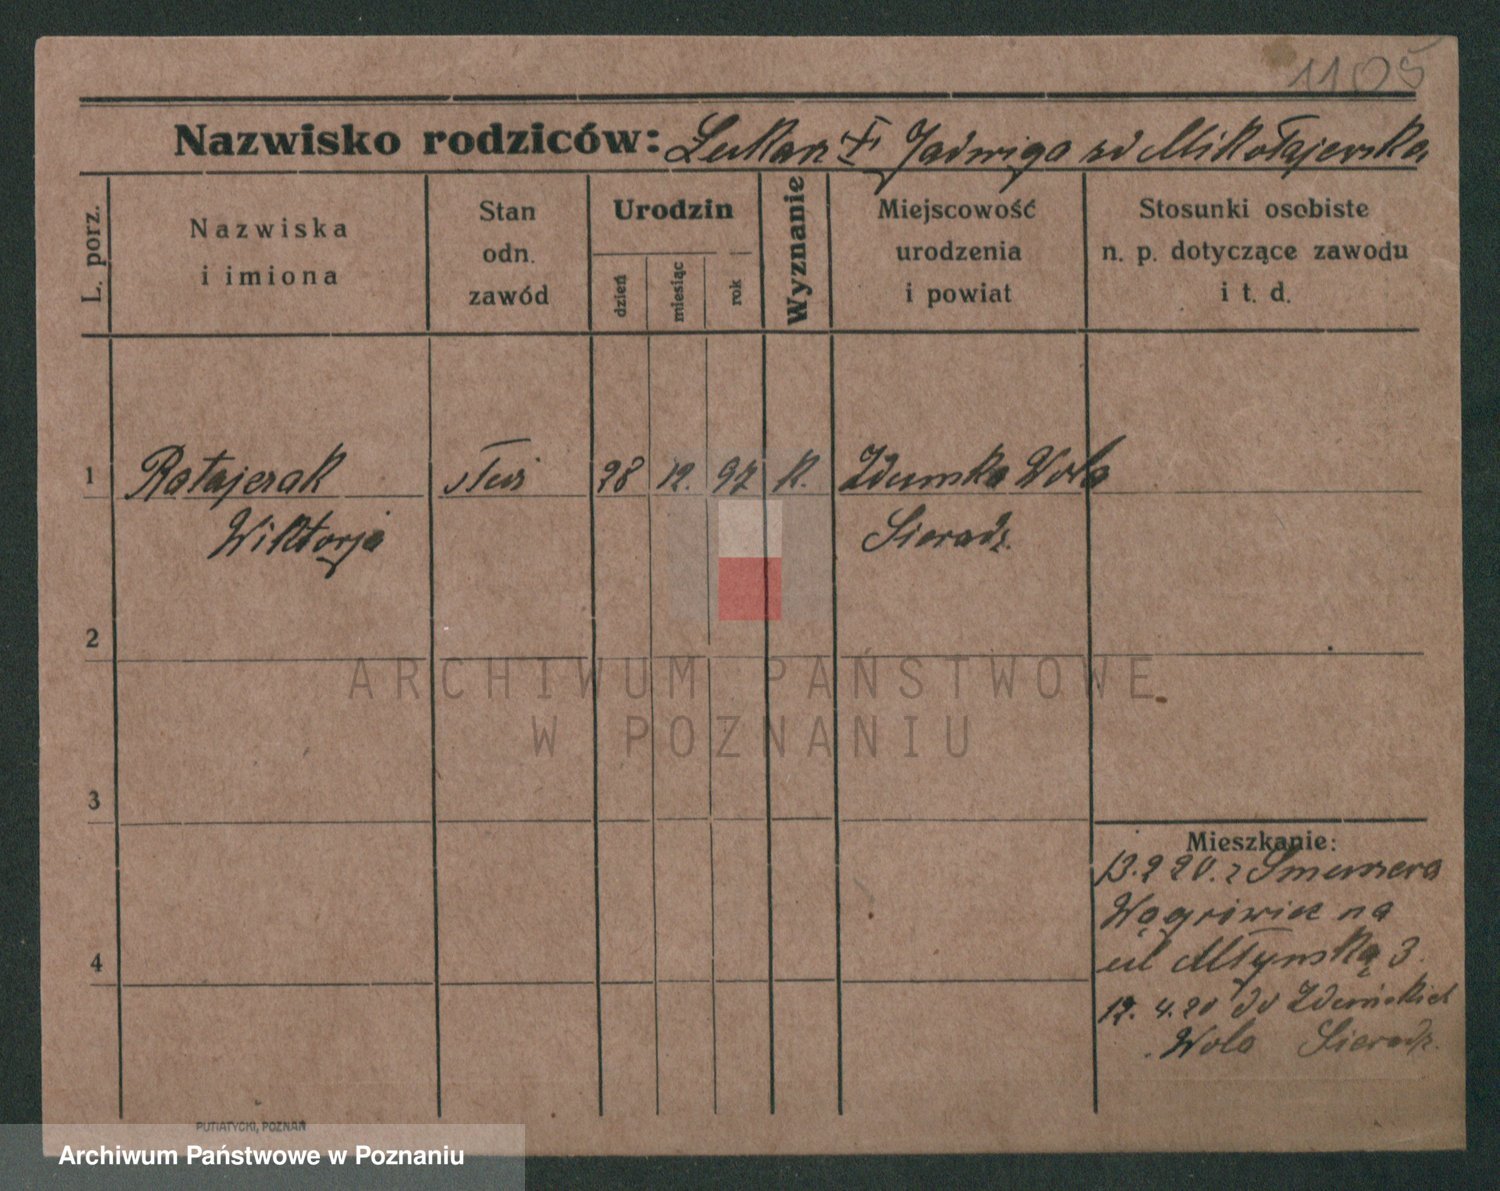 1105
Nazwisko rodziców: Łukasz + Jadwiga zd Mikołajewska
L. porz.
Nazwiska
i imiona
Stan
odn.
zawód
Urodzin
dzień
miesiąc
rok
Wyznanie
Miejscowość
urodzenia
i powiat
Stosunki osobiste
n. p. dotyczące zawodu
i t. d.
1 Ratajczak służ 28 12. 97 k. Zdunska Wola
Wiktorja Sieradz.
2
3
4
ARCHIWUM PAŃSTWOWE
W POZNANIU
Mieszkanie:
13.2 20. z
Wągrowiec na
ul Młynską 3.
17. 4. 20 do Zduńskiej
Wola Sieradz.
PUTIATYCKI, POZNAŃ
Archiwum Państwowe w Poznaniu